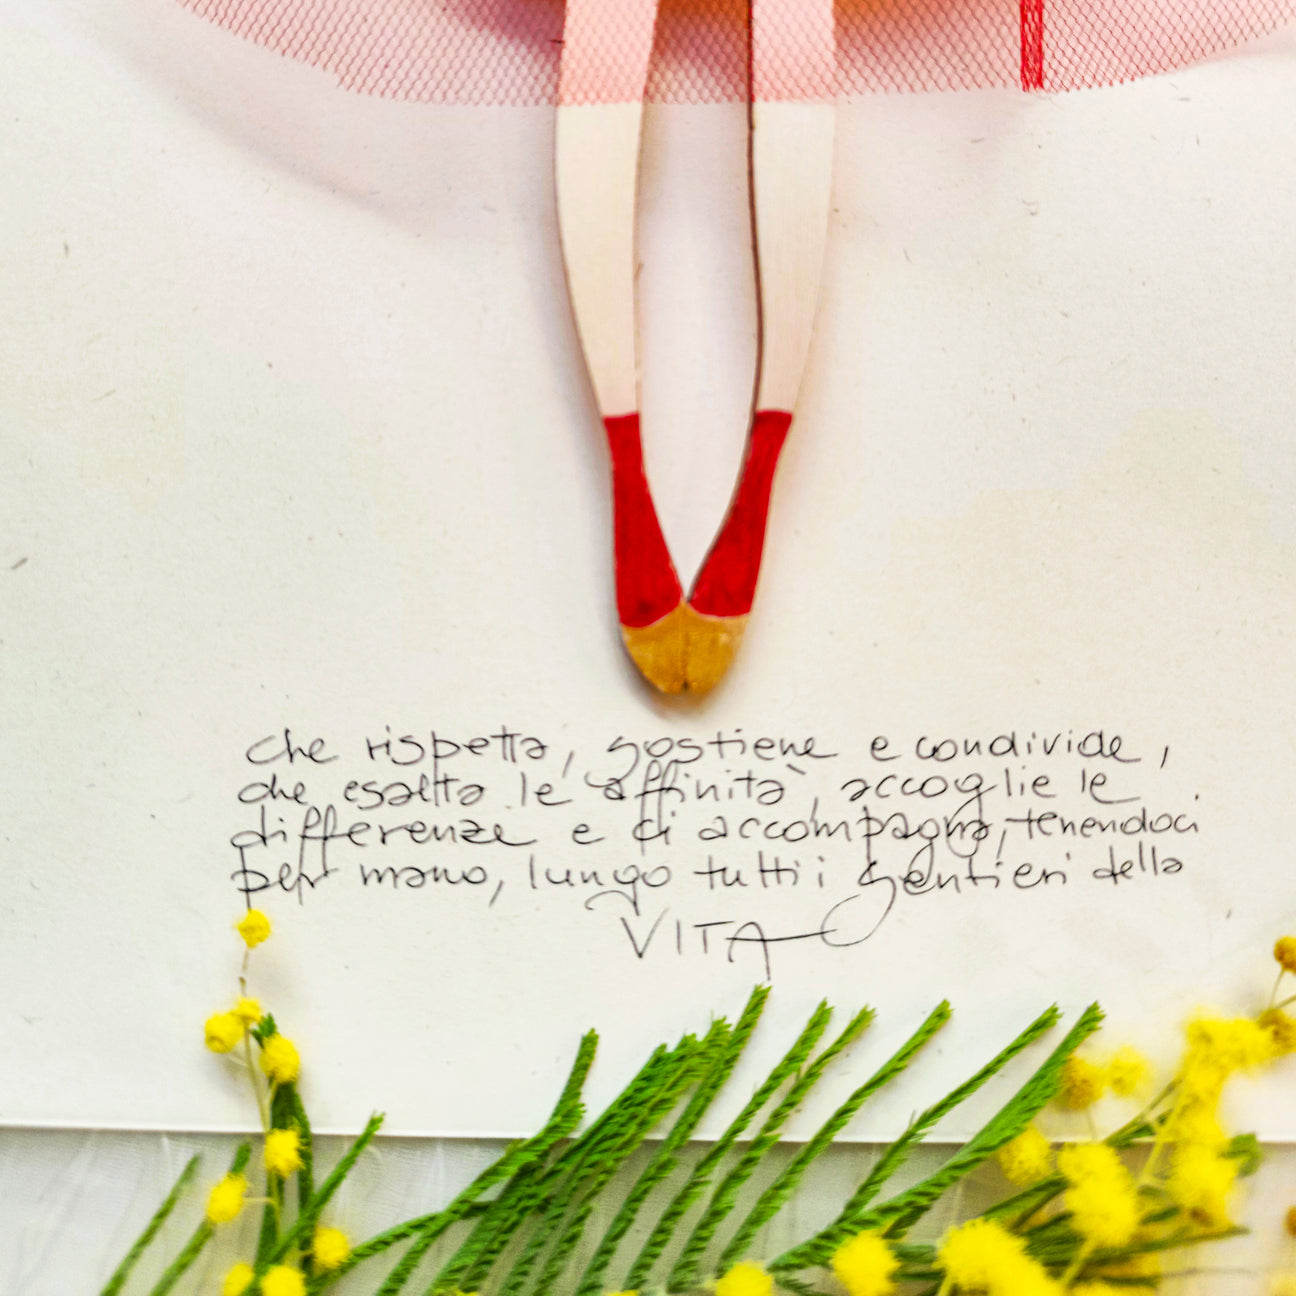 che rispetta, sostiene e condivide,
che esalta le affinità, accoglie le
differenze e ci accompagna, tenendoci
per mano, lungo tutti i sentieri della
VITA